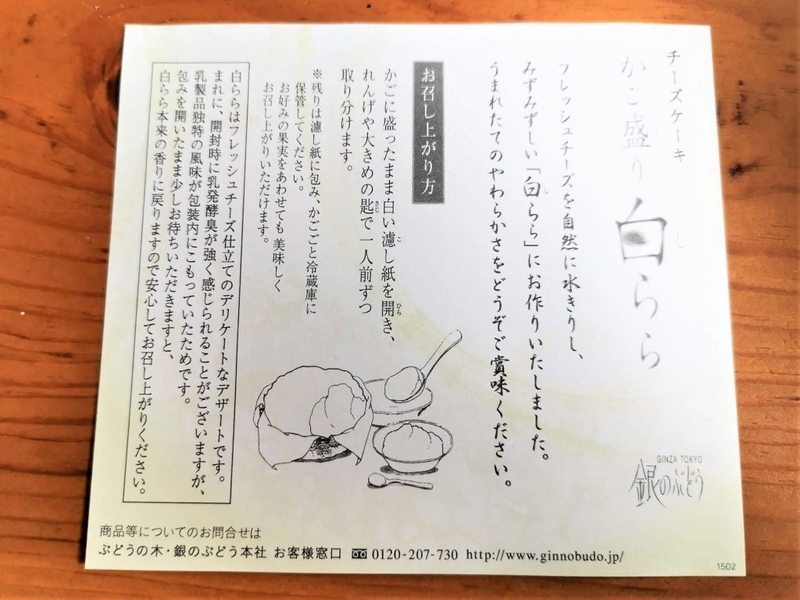 チーズケーキ
かご盛り 白らら
フレッシュチーズを自然に水きりし、
みずみずしい「白らら」にお作りいたしました。
うまれたてのやわらかさをどうぞご賞味ください。
お召し上がり方
かごに盛ったまま白い濾し紙を開き、
れんげや大きめの匙で一人前ずつ
取り分けます。
※残りは濾し紙に包み、かごごと冷蔵庫に
保管してください。
お好みの果実をあわせても美味しく
お召し上がりいただけます。
白ららはフレッシュチーズ仕立てのデリケートなデザートです。
まれに、開封時に乳発酵臭が強く感じられることがございますが、
乳製品独特の風味が包装内にこもっていたためです。
包みを開いたまま少しお待ちいただきますと、
白らら本来の香りに戻りますので安心してお召し上がりください。
GINZA TOKYO
銀のぶどう
商品等についてのお問合せは
ぶどうの木・銀のぶどう本社 お客様窓口 0120-207-730 http://www.ginnobudo.jp/
1502